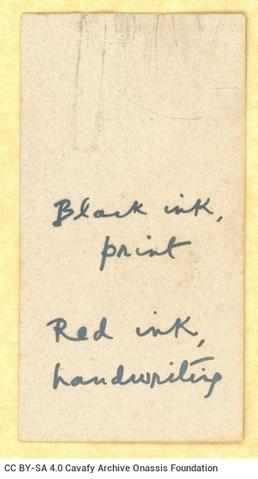 Black ink,
print
Red ink,
handwriting
CC BY-SA 4.0 Cavafy Archive Onassis Foundation